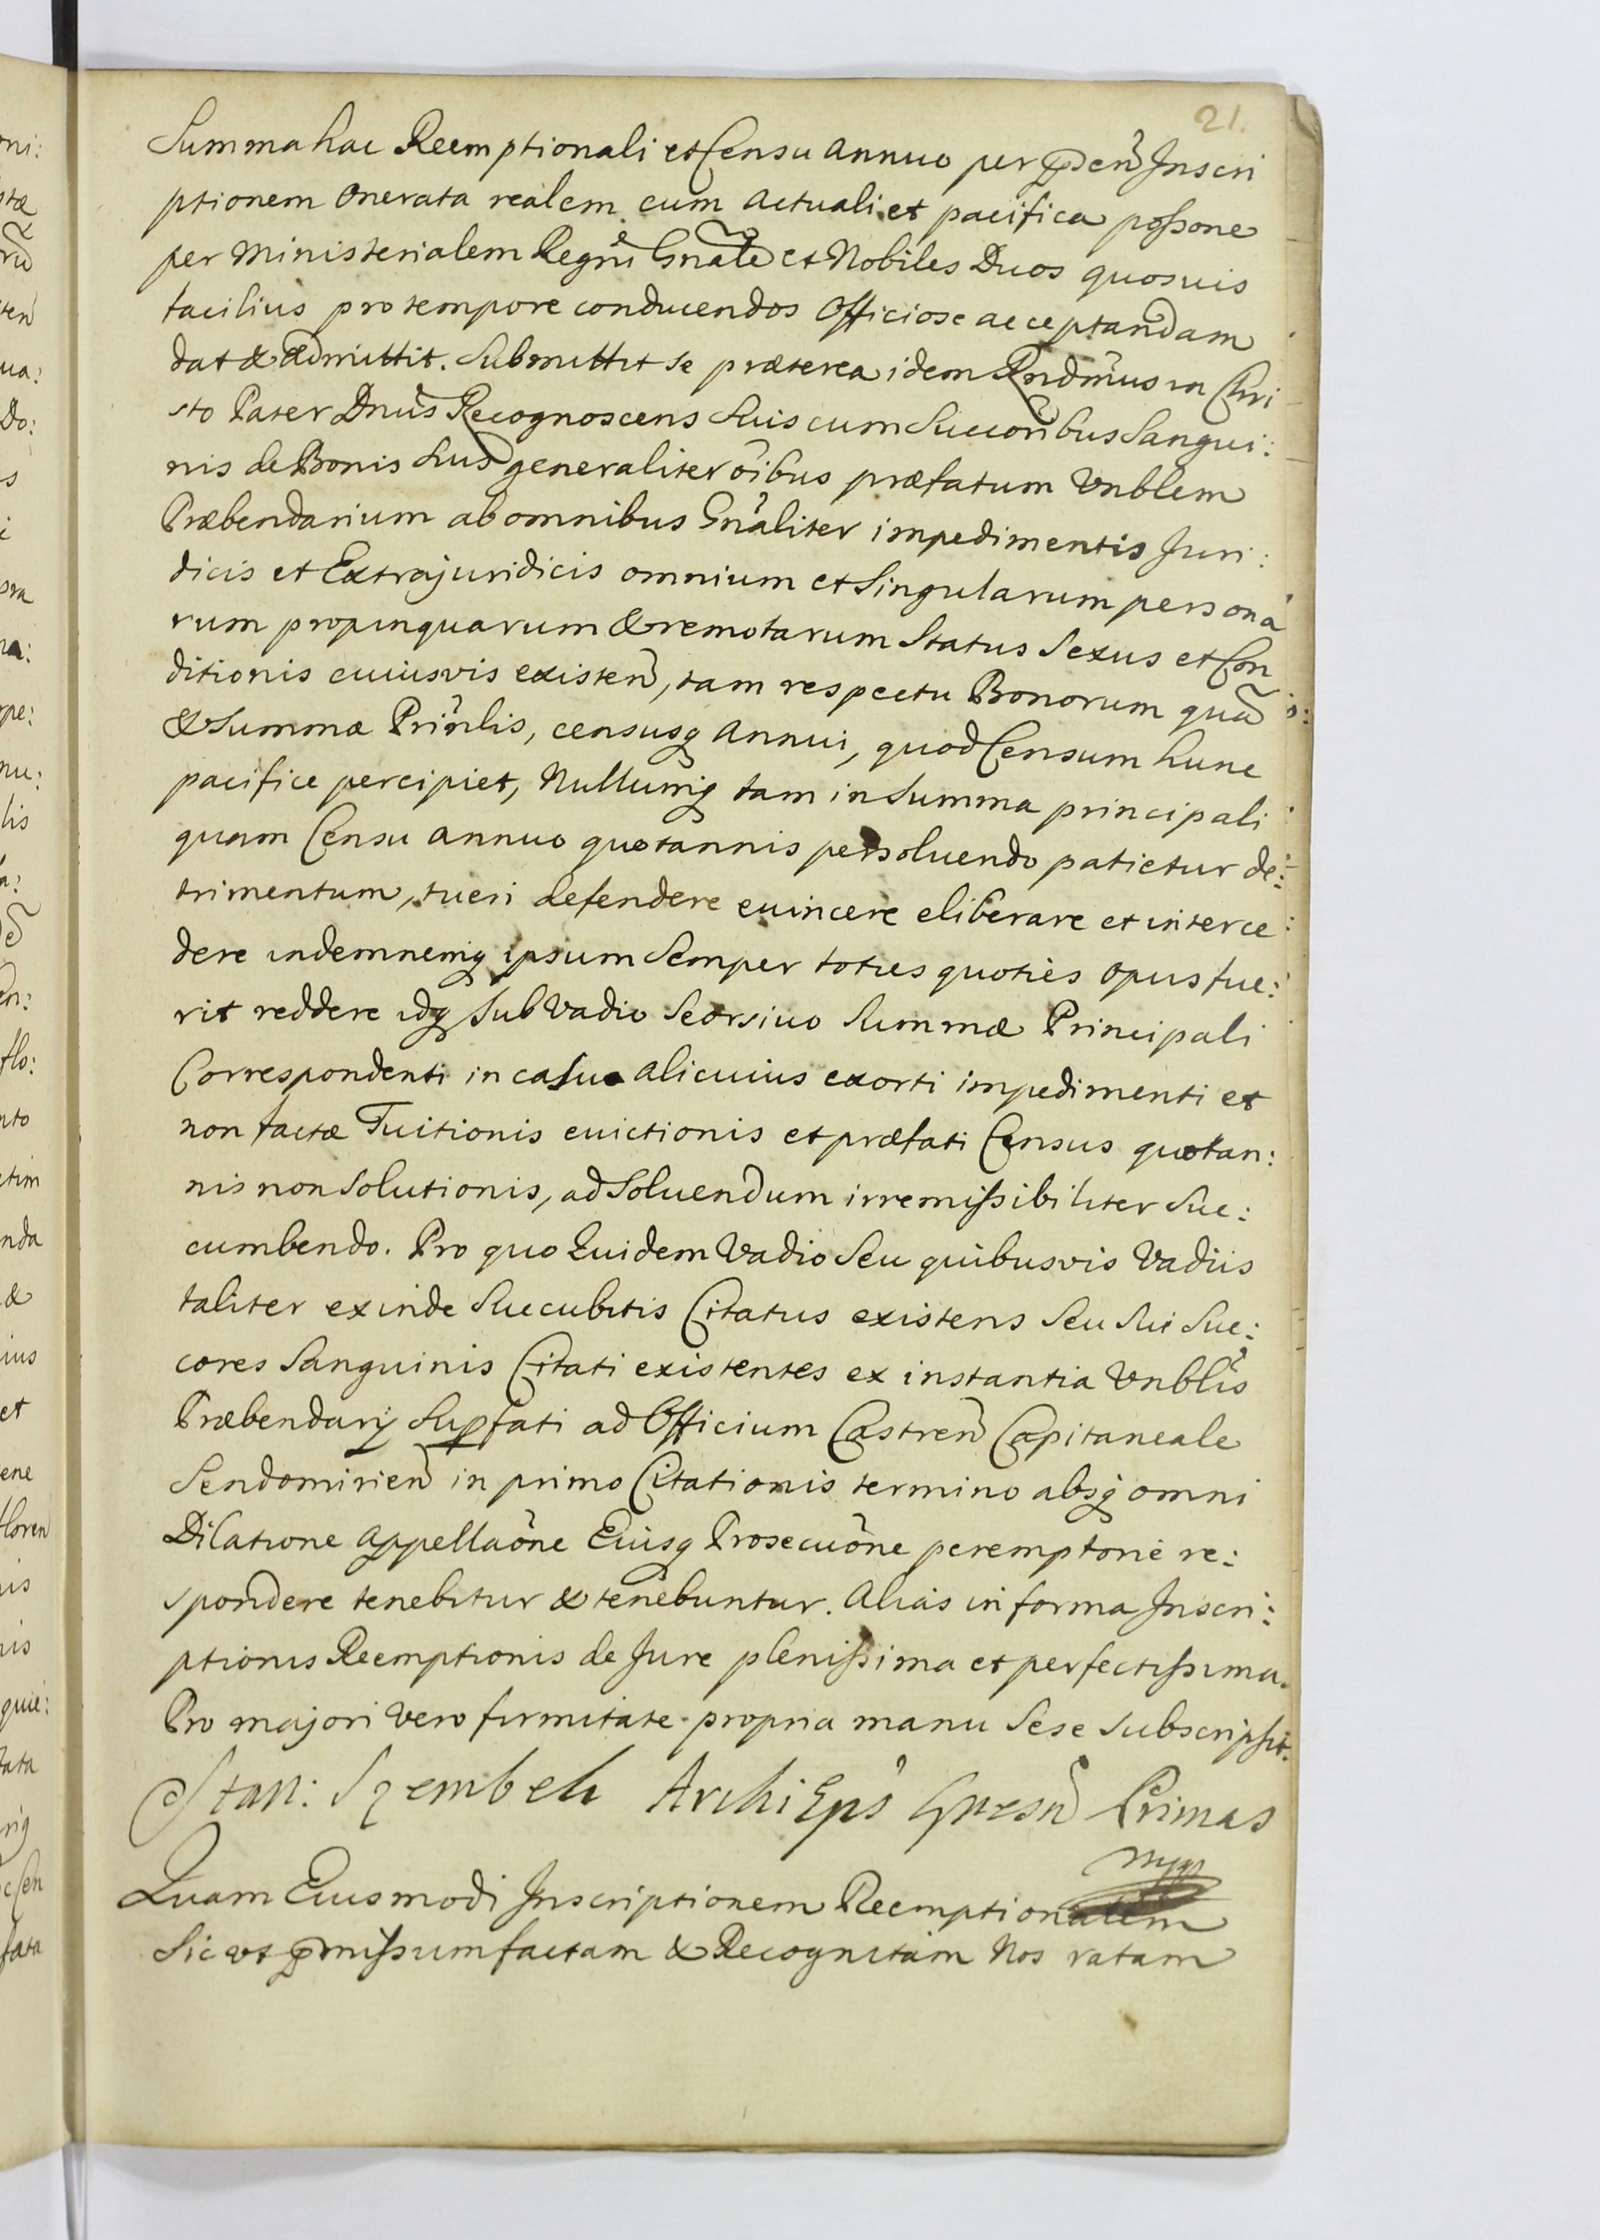 21.
Summa hac Reemptionali et Censu annuo per pñsen Inscri
ptionem onerata realem cum actuali et pacifica possone
per Ministerialem Regni Gnalē et Nobiles Duos quosuis
facilius pro tempore conducendos Officiose acceptandam
dat & admittit. Submittit se præterea idem Rndmus in Chri
sto Pater Dnus Recognoscens Suis cum Succoribus Sangui:
nis de Bonis Suis generaliter oibus præfatum Vnblem
Præbendarium ab omnibus Gnaliter impedimentis Juri:
dicis et Extrajuridicis omnium et Singularum persona
rum propinquarum & remotarum Status Sexus et Con
ditionis cuiusvis existen, tam respectu Bonorum quā
& Summæ Prinlis, censusq annui, quod Censum hunc
pacifice percipiet, Nullumq tam in Summa principali
quam Censu annuo quotannis persoluendo patietur de:
trimentum, tueri defendere euincere eliberare et interce
dere indemnemq ipsum Semper toties quoties opus fue:
rit reddere idq Sub Vadio Seorsiuo Summæ Principali
Correspondenti in casu alicuius exorti impedimenti et
non factæ Tuitionis euictionis et præfati Census quotan:
nis non Solutionis, ad Soluendum irremissibiliter Suc:
cumbendo. Pro quo Quidem Vadio Seu quibusvis Vadiis
taliter exinde Succubitis Citatus existens Seu Sui Suc:
cores Sanguinis Citati existentes ex instantia Vnblis
Præbendarij Supfati ad Officium Castren Capitaneale
Sendomirien in primo Citationis termino absq omni
Dilatione Appellaone Eiusq Prosecuone peremptorie re:
spondere tenebitur & tenebuntur. Alias in forma Inscri:
ptionis Reemptionis de Jure plenissima et perfectissima.
Pro majori vero firmitate propria manu Sese subscripsit.
Stan: Szembek ArchiEps Gnesn Primas
mpp
Quam Eiusmodi Inscriptionem Reemptionalem
Sic ut pmissum factam & Recognitam Nos ratam